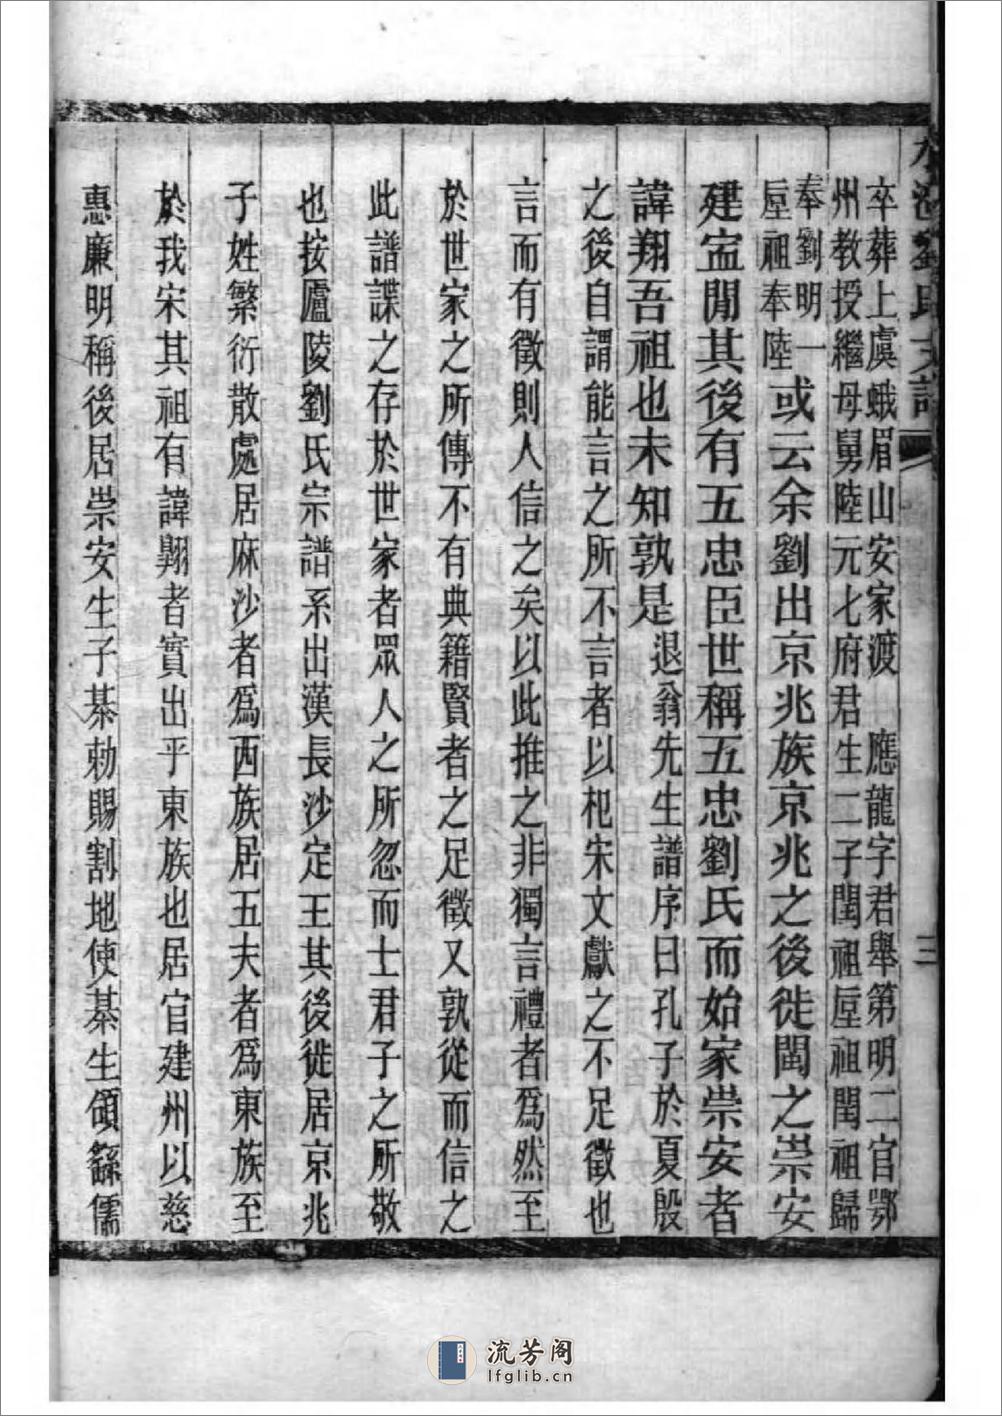 卒葬上虞蛾眉山安家渡　應龍字君舉第明二官鄂
州教授繼母舅陸元七府君生二子閏祖垕祖閏祖歸
奉劉明一
垕祖奉陸
或云余劉出京兆族京兆之後徙閩之崇安
建寍閒其後有五忠臣世稱五忠劉氏而始家崇安者
諱翔吾祖也未知孰是　退翁先生譜序曰孔子於夏殷
之後自謂能言之所不言者以杞宋文獻之不足徵也
言而有徵則人信之矣以此推之非獨言禮者爲然至
於世家之所傳不有典籍賢者之足徵又孰從而信之
此譜諜之存於世家者眾人之所忽而士君子之所敬
也按廬陵劉氏宗譜系出漢長沙定王其後徙居京兆
子姓繁衍散處居麻沙者爲西族居五夫者爲東族至
於我宋其祖有諱翺者實出乎東族也居官建州以慈
惠廉明稱後居崇安生子綦勅賜割地使綦生頜繇儒
劉氏
三
流芳阁
lfglib.cn